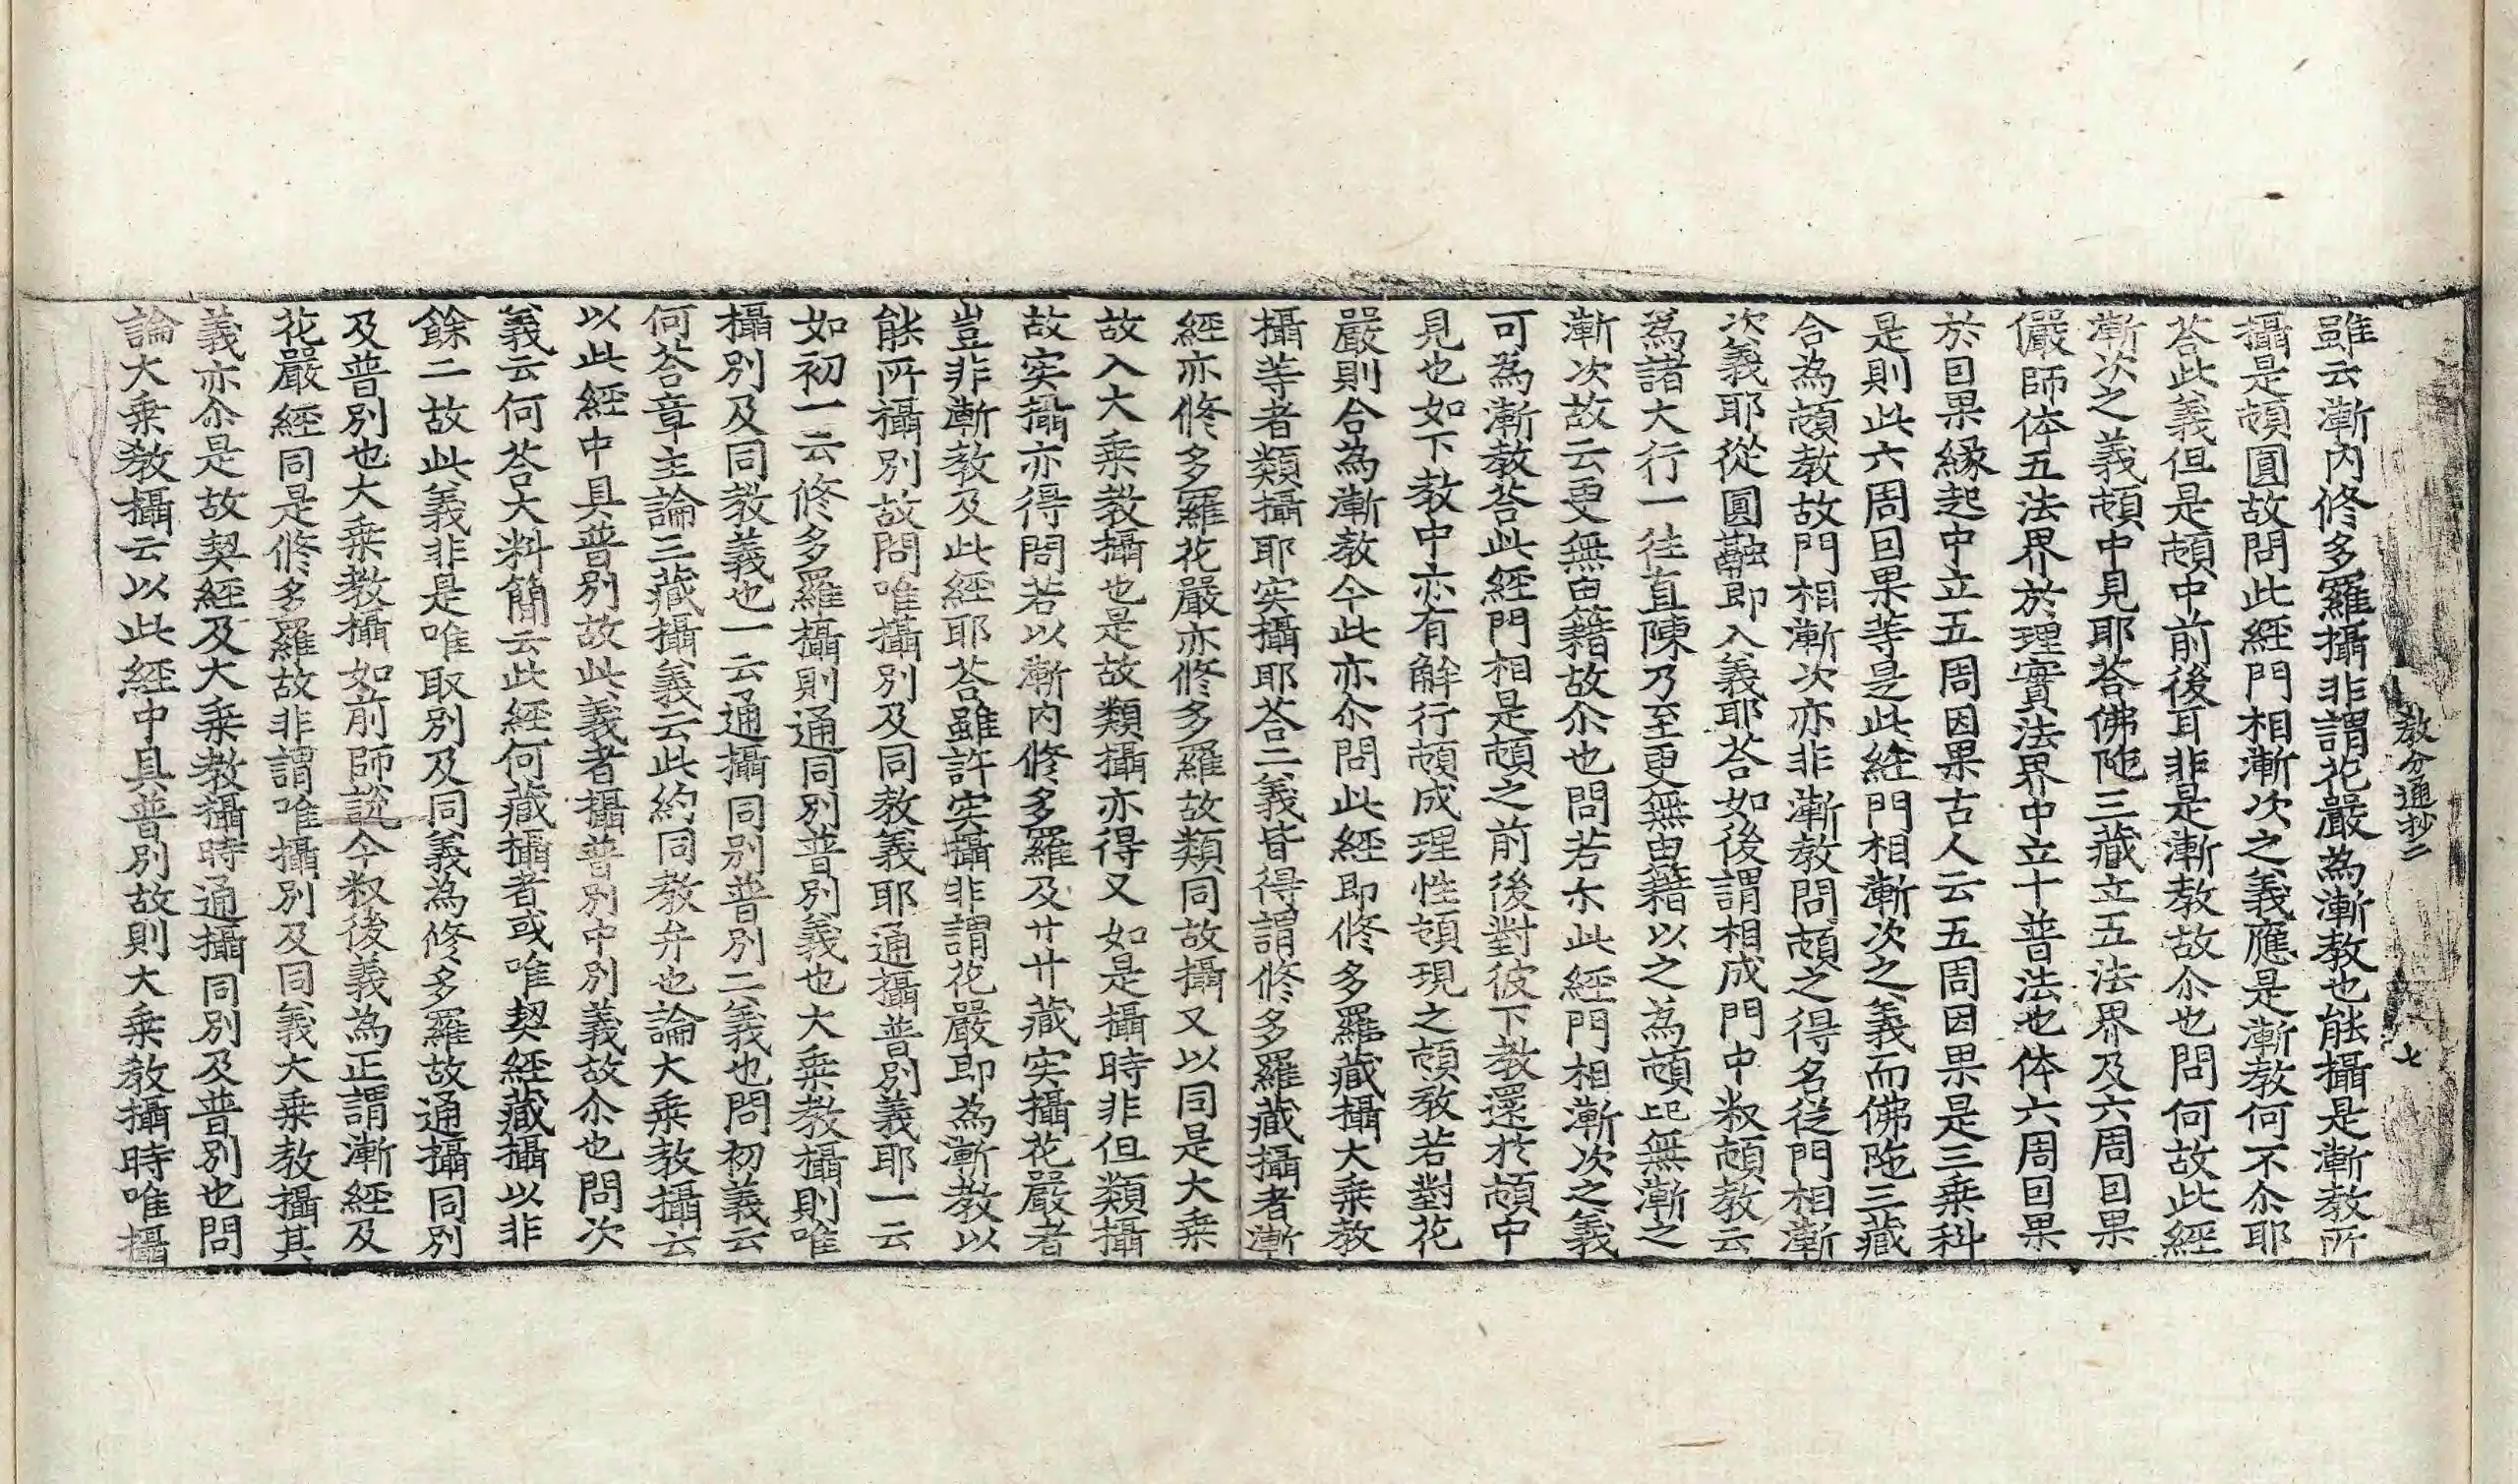 教分通抄二
七
雖云漸内修多羅攝非謂花嚴為漸教也能攝是漸教所
攝是頓圓故問此經門相漸次之義應是漸教何不尒耶
荅此義但是頓中前後耳非是漸教故尒也問何故此經
漸次之義頓中見耶荅佛陁三藏立五法界及六周因果
儼師体五法界於理實法界中立十普法也体六周因果
於因果縁起中立五周因果古人云五周因果是三乗科
是則此六周因果䒭是此經門相漸次之義而佛陁三藏
合為頓教故門相漸次亦非漸教問頓之得名從門相漸
次義耶從圓融即入義耶荅如後謂相成門中叙頓教云
為諸大行一往直陳乃至更無由籍以之為頓既無漸之
漸次故云更無由籍故尒也問若尒此經門相漸次之義
可為漸教荅此經門相是頓之前後對彼下教還於頓中
見也如下教中亦有解行頓成理性頓現之頓教若對花
嚴則合為漸教今此亦尒問此經即修多羅藏攝大乗教
攝䒭者類攝耶实攝耶荅二義皆得謂修多羅藏攝者漸
經亦修多羅花嚴亦修多羅故類同故攝又以同是大乗
故入大乗教攝也是故類攝亦得又如是攝時非但類攝
故实攝亦得問若以漸内修多羅及卄卄藏实攝花嚴者
豈非漸教及此經耶荅雖許实攝非謂花嚴即為漸教以
能所攝別故問唯攝別及同教義耶通攝普別義耶一云
如初一云修多羅攝則通同別普別義也大乗教攝則唯
攝別及同教義也一云通攝同別普別二義也問初義云
何荅章主論三藏攝義云此約同教弁也論大乗教攝云
以此經中具普別故此義者攝普別中別義故尒也問次
義云何荅大料簡云此經何藏攝者或唯契經藏攝以非
餘二故此義非是唯取別及同義為修多羅故通攝同別
及普別也大乗教攝如前師説今叙後義為正謂漸經及
花嚴經同是修多羅故非謂唯攝別及同義大乗教攝其
義亦尒是故契經及大乗教攝時通攝同別及普別也問
論大乗教攝云以此經中具普別故則大乗教攝時唯攝